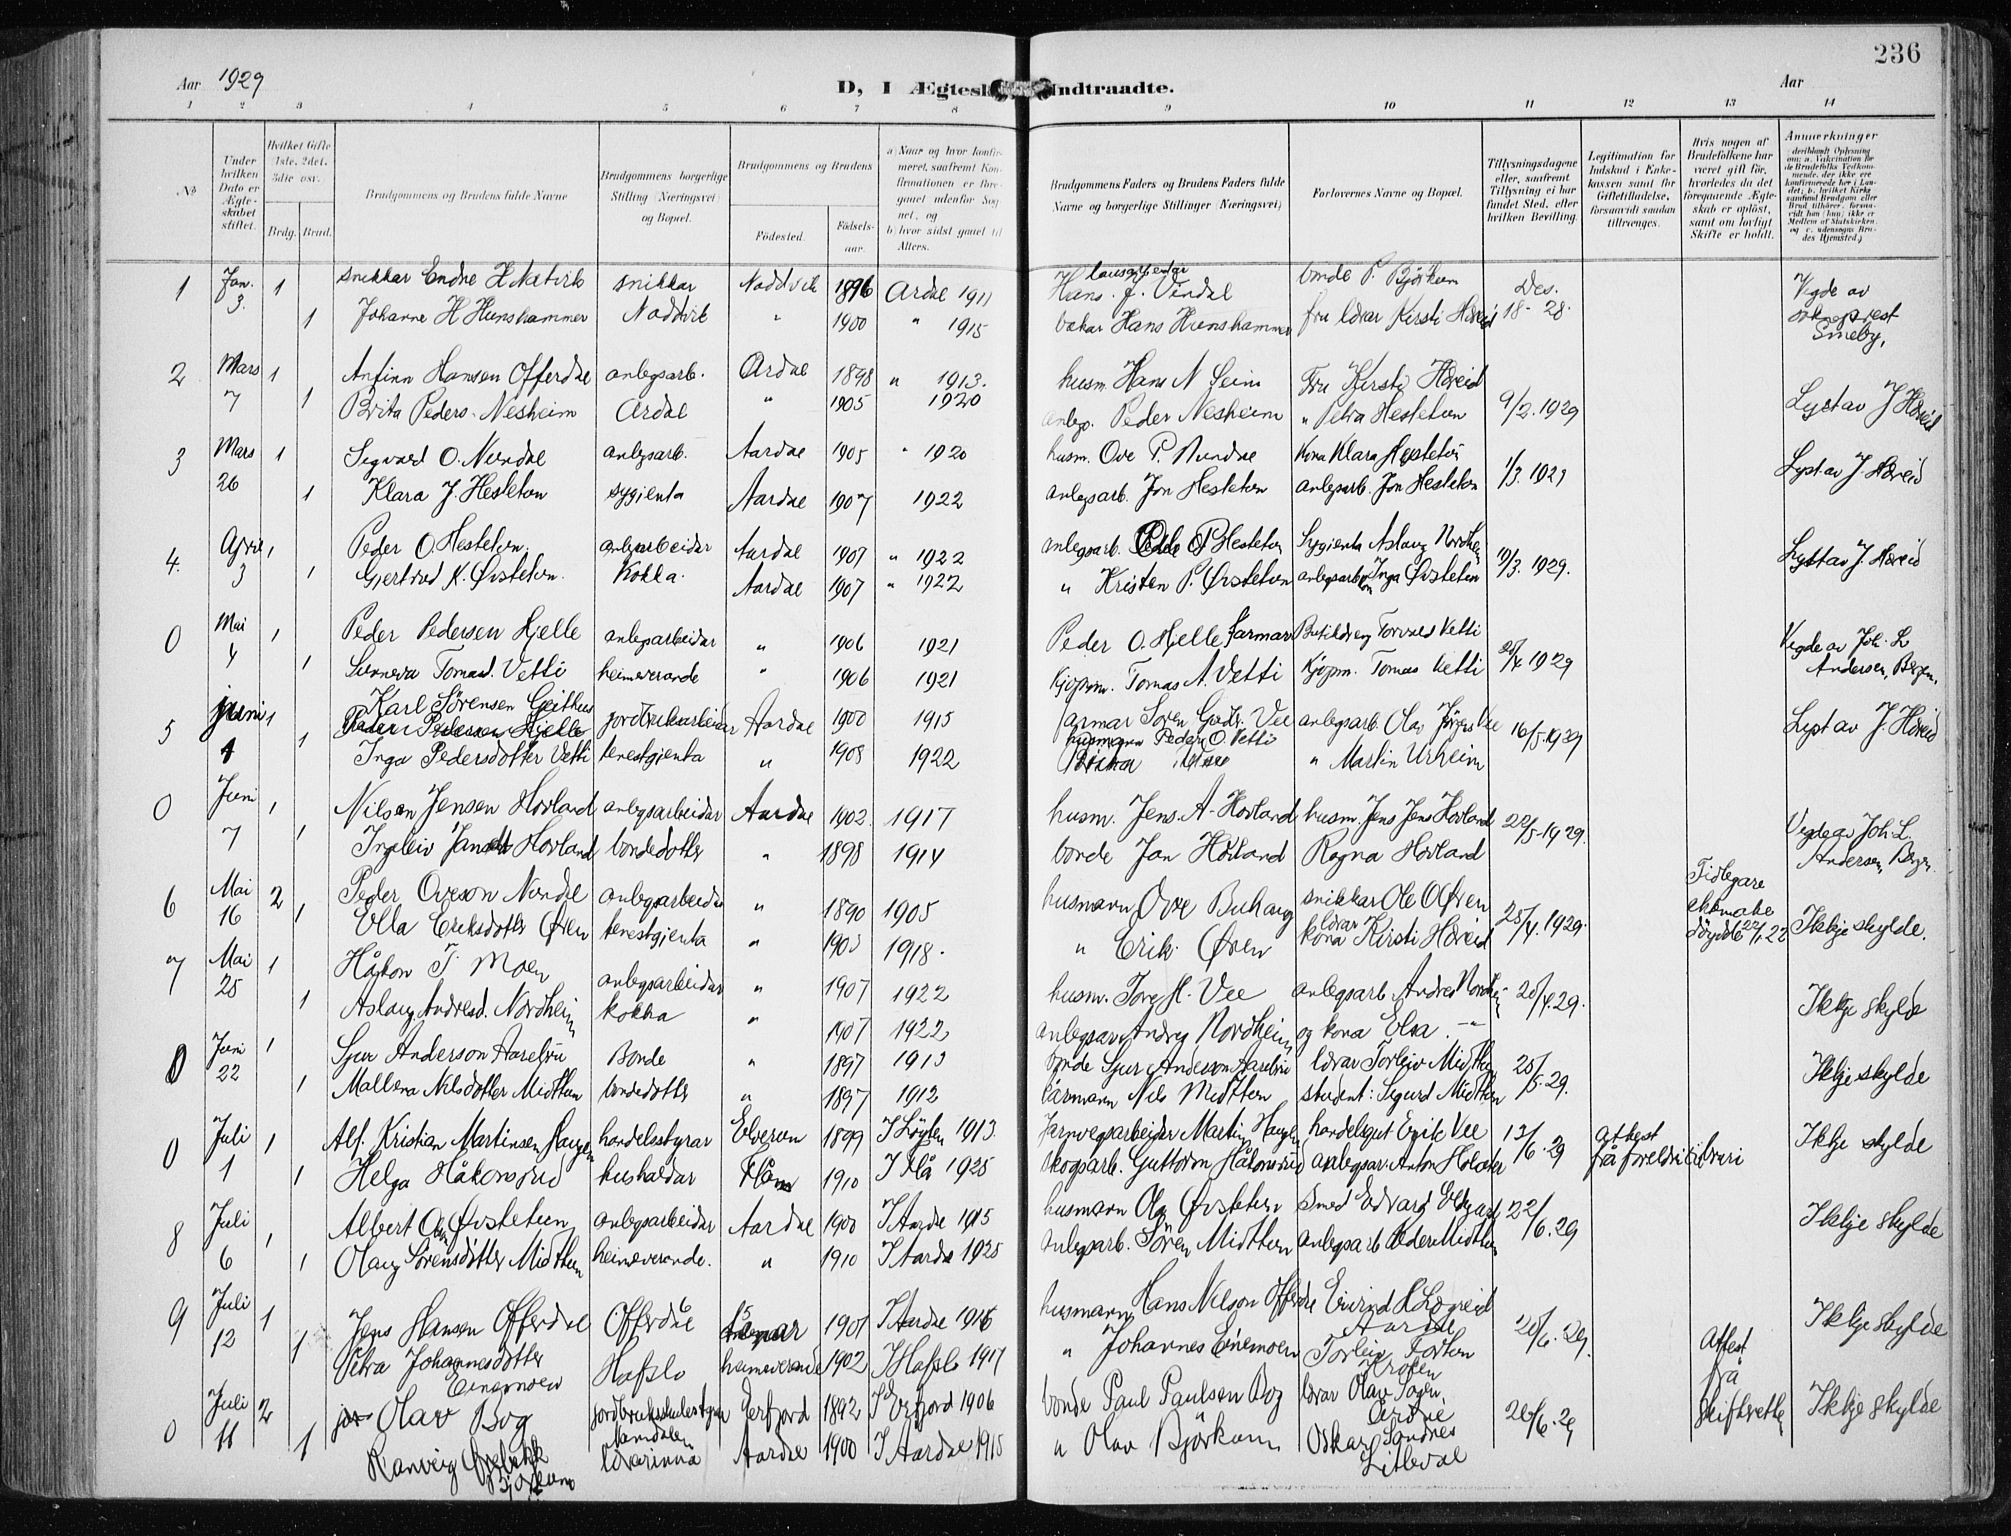 236
Aar 1929
D, I Ægtesk Indtraadte.
Aar
1 2 3 4 5 6 7 8 9 10 11 12 13 14
No
Under hvilken Dato er Ægteskabet stiftet.
Hvilket Gifte 1ste, 2det, 3die osv.
Brdg. Brud.
Brudgommens og Brudens fulde Navne
Brudgommens borgerlige Stilling (Næringsvei) og Bopæl.
Brudgommens og Brudens
Fødested.
Fødselsaar.
a) Naar og hvor konfirmeret, saafremt Konfirmationen er foregaaet udenfor Sognet, og
b) hvor sidst gaaet til Alters.
Brudgommens Faders og Brudens Faders fulde Navne og borgerlige Stillinger (Næringsvei)
Forlovernes Navne og Bopæl.
Tillysningsdagene eller, saafremt Tillysning ei har fundet Sted, efter hvilken Bevilling.
Legitimation for Indskud i Enkekassen samt for Giftetilladelse, forsaavidt saadan tiltrænges.
Hvis nogen af Brudefolkene har været gift før, hvorledes da det foregaaende Ægteskab er opløst, samt om lovligt Skifte er holdt.
Anmerkninger
1 Jan. 3. 1 snikkar Endre H Natvik snikkar Naddvik 1896 Ardal 1911 Hans. J. Vindal bonde P. Björkum Des. 18-28. Vigde av sokneprest Smeby,
1 Johanne H Hunshammer Naddvik " 1900 " 1915 bakar Hans Hunshammer fru lærar Kirsti Hæreid
2 Mars 7 1 Anfinn Hansen Offerdal anlegsarb. Ardal 1898 " 1913. husm Hans N Seim Fru Kirsti Hæreid 9/2.1929 Lyst av J Hæreid
1 Brita Peders. Nesheim Ardal " 1905 1920 anlegs. Peder Nesheim " Petra Hestetun
3 Mars 26 1 Sigvard O. Nundal anlegsarb. Aardal 1905 " 1920 husm. Ove P. Nundal Kona Klara Hestetun 1/3.1929 Lyst av J. Hæreid
1 Klara J. Hestetun sygjenta Aardal 1907 1922 anlegsarb. Jon Hestetun anlegsarb. Jon Hestetun
4. April 3 1 Peder O. Hestetun anlegsarbeidar Aardal 1907 " 1922 anlegsarb. Hestetun Sygjenta Aslaug Nordheim 19/3. 1929. Lyst av J. Hæreid
1 Gjertrud K. Øvstetun. Kokka. Aardal 1907 " 1922 " Kristen P. Øvstetun anlegsarb. Inga Øvstetun
0 Mai 4 1 Peder Pedersen Hjelle anlegsarbeidar " 1906 1921 Peder O. Hjelle farmar Torvald Vetti 1929 Vigde av Joh. L. Andersen, Bergen.
1 Sunneva Tomasd. Vetti heimeverande " 1906 1921 kjøpm. Tomas A. Vetti Kjøpm. Tomas Vetti
5 juni 1 1 Karl Sörensen Geithus jordbruksarbeidar Aardal 1900 1915 farmar Sören Vee anlegsarb. Olav Vee 16/5.1929 Lyst av J. Hæreid
Peder Pedersen Hjelle
1 Inga Pedersdotter Vetti tenestgjenta " 1908 1922 husmann Peder O. Vetti " Martin Urheim
0 Juni 7 1 Nilsen Jensen Hovland anlegsarbeidar Aardal 1902. 1917 husm. Jens. A. Hovland husm. Jens Jens Hovland 22/5-1929. Vigde av Joh. L. Andersen, Bergen.
1 Ingleiv Jansdtr Hovland bondedotter " 1898 1914 bonde Jan Hovland Ragna Hovland
6 Mai 16 2 Peder Oveson Nundal anlegsarbeidar " 1890 1905 husmann Ove Buhaug snikkar Ole O Øren 28/4.1929. Tidlegare ektmake døydde 22 Ikkje skylde.
1 Ella Eriksdotter Øren tenestgjenta " 1903 1918. " Erik Øren lærar kona Kirsti Hæreid
7 Mai 25 1 Håkon T. Moen anlegsarbeidar " 1907 1922 husm. Tore H. Vee anlegsarb. Andres Nordheim 20/4.29. Ikkje skylde
1 Aslaug Andresd. Nordheim kokka " 1907 1922 anlegsarb. Andres Nordheim og kona Elsa -"-
0 Juni 22 1 Sjur Anderson Aarebrú Bonde " 1897 1913 bonde Sjur Anderson Aarebrú lærar Torleiv Midttun 25/5.29. Ikkje skylde
1 Mallena Nilsdotter Midttun bondedotter " 1897 1912 Nils Midttun student: Sigurd Midttun
0 Juli 1 1 Alf. Kristian Martinsen Haugen handelsstyrar Elverum 1899 I Löyten 1913. Jarnvegsarbeidar Martin Haugen handelsgut Eirik Vee 13/6.29 attest frå foreldri åt bruri Ikkje skylde
1 Helga Håkonsrud hushaldar Flå 1910 I Flå 1925 skogsarb. Guttorm Håkonsrud anlegsar. Anton
8 Juli 6 1 Albert Øvstetun anlegsarbeidar Aardal 1900 I Aardal 1915 husmann Olav Øvstetun Smed Edvard 22/6.29 Ikkje skylde
1 Olaug Sörensdotter Midttun heimeverande. " 1910 I Aardal 1925 anlegsarb. Sören Midttun anlegsarb Peder Midttun
9 Juli 12 1 Jens Hansen Offerdal Offerdal 1901 I Aardal 1916 husmann Hans Nelson Offerdal Eivind H Hæreid Aardal 20/6.29. Ikkje skylde
1 Petra Johannesdotter Einemoen Hafslo heimeverande 1902 I Hafslo 1917 " Johannes Einemoen Torleiv Fortun Kroken
0 Juli 11 2 Olav Bog jordbruksskulestyrar Namdalen Jerfjord 1892 I Erfjord 1906 bonde Paul Paulsen Bog lærar Olav Sogn, Ardal 26/6.29 Attest frå skifteretten Ikkje skylde
1 Ranveig Björkum lærarinna Aardal 1900 I Aardal 1915 " Olav Björkum Oskar Sandnes Litleval